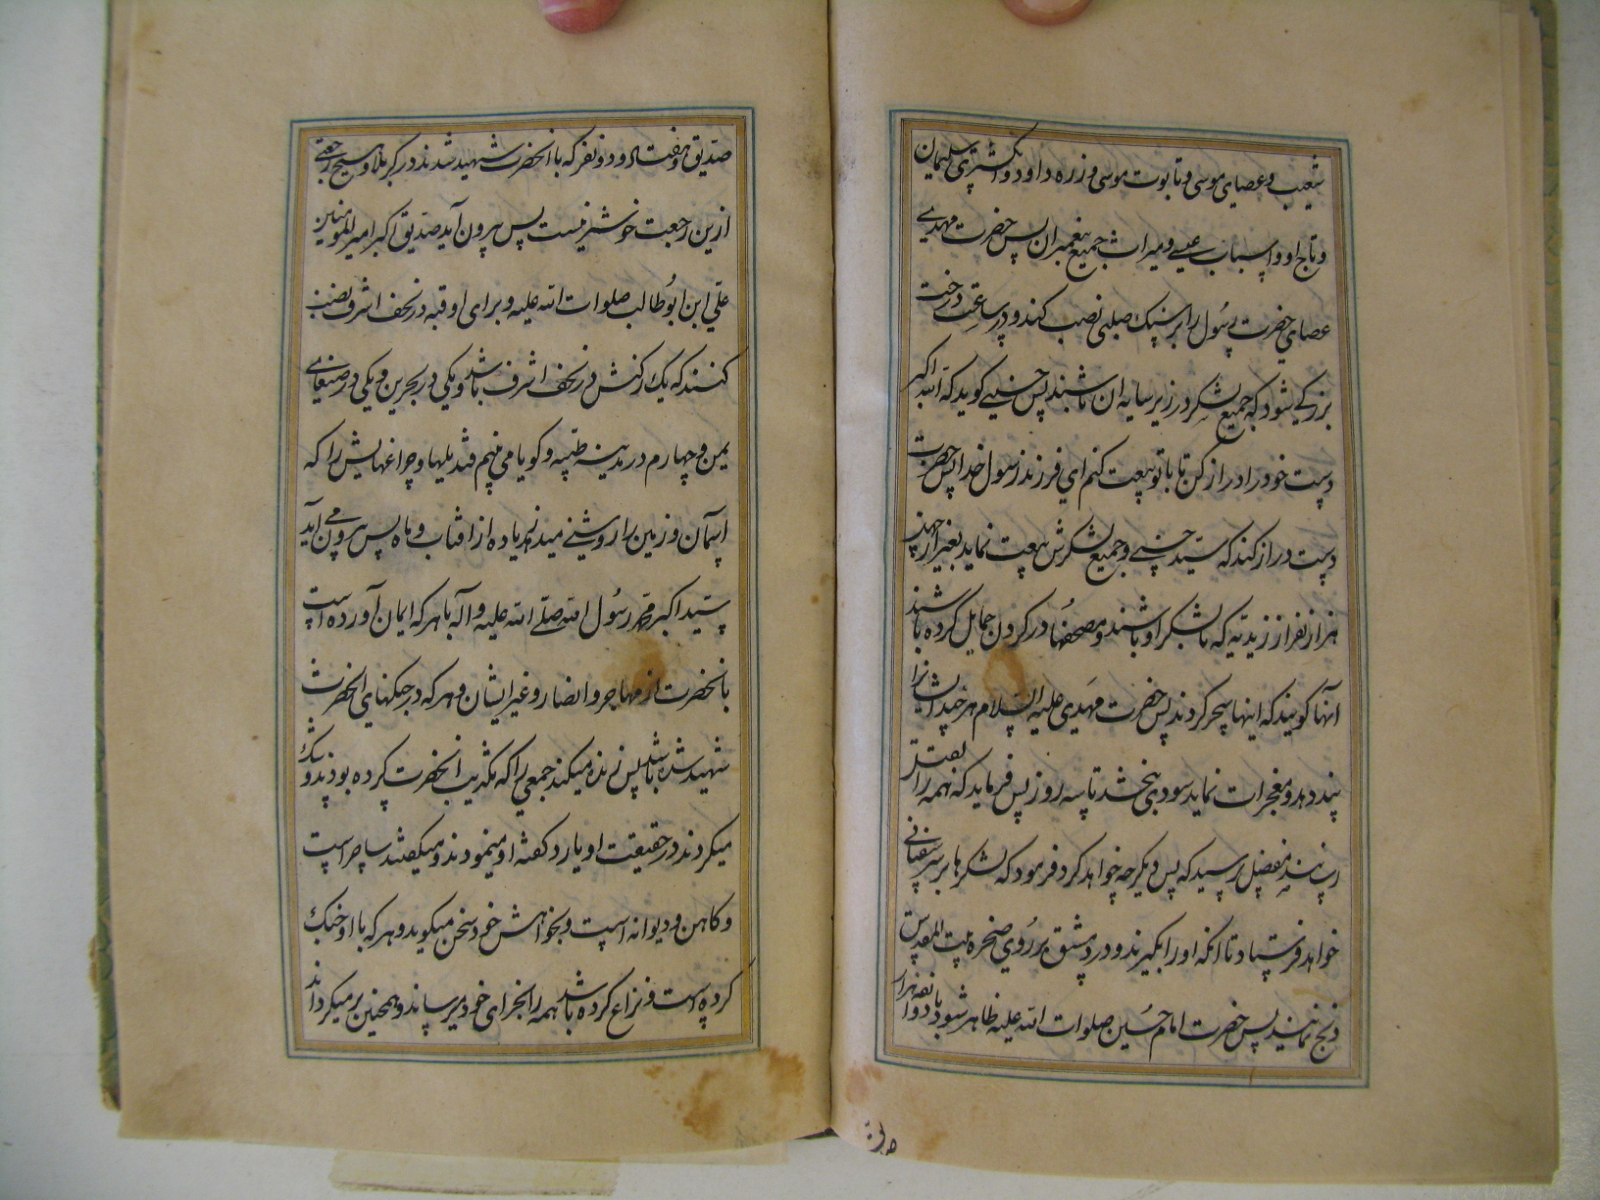 شعیب و عصای موسی و تابوت موسی و زره داود و انکشتری سلیمان
و تاج او و اسباب عیسی و میراث جمیع پیغمبران پس حضرت مهدی
عصای حضرت رسول را بر سنک صلبی نصب کند و در ساعت درخت
بزرکی شود که جمیع لشکر در زیر سایه ان باشند پس حسنی کوید که الله اکبر
دست خود را دراز کن تا با تو بیعت کنم ای فرزند رسول خدا پس حضرت
دست دراز کند که سید حسنی و جمیع لشکرش بیعت نماید بغیر از چهل
هزار نفر از زیدیه که با لشکر او باشند و مصحفها در کردن حمایل کرده باشند
آنها کویند که اینها سحر کردند پس حضرت مهدی علیه السلام هر چند ایشانرا
پند دهد و معجزات نماید سودی نبخشد تا سه روز پس فرماید که همه را بقتل
رسانند مفضل پرسید که پس دیکر چه خواهد کرد فرمود که لشکرها بر سر سفیانی
خواهد فرستاد تا انکه او را بکیرند و در دمشق بر روی صخره بیت المقدس
ذبح نمایند پس حضرت امام حسین صلوات الله علیه ظاهر شود با دوازده هزار
صدیق و هفتاد و دو نفر که با انحضرت شهید شدند در کربلا و هیچ رجعتی
ازین رجعت خوشتر نیست پس بیرون آید صدیق اکبر امیر المومنین
علی ابن ابوطالب صلوات الله علیه و برای او قبه در نجف اشرف نصب
کنند که یک رکنش در نجف اشرف باشد و یکی در بحرین و یکی در صنعای
یمن و چهارم در مدینه طیبه و کویا می بینم قندیلها و چراغهایش را که
اسمان و زمین را روشنی میدهد زیاده از افتاب و ماه پس بیرون می آید
سید اکبر محمد رسول الله صلی الله علیه و آله با هر که ایمان آورده است
بانحضرت از مهاجر و انصار و غیر ایشان و هر که در جنکهای انحضرت
شهید شده باشد پس زنده میکند جمعی را که تکذیب انحضرت کرده بودند و شک
میکردند در حقیقت او یا رد کفته او مینمودند و میکفتند ساحر است
و کاهن و دیوانه است و بخواهش خود سخن میکوید و هر که با او جنک
کرده است و نزاع کرده باشد همه را بجزای خود میرساند و همچنین بر میکرداند